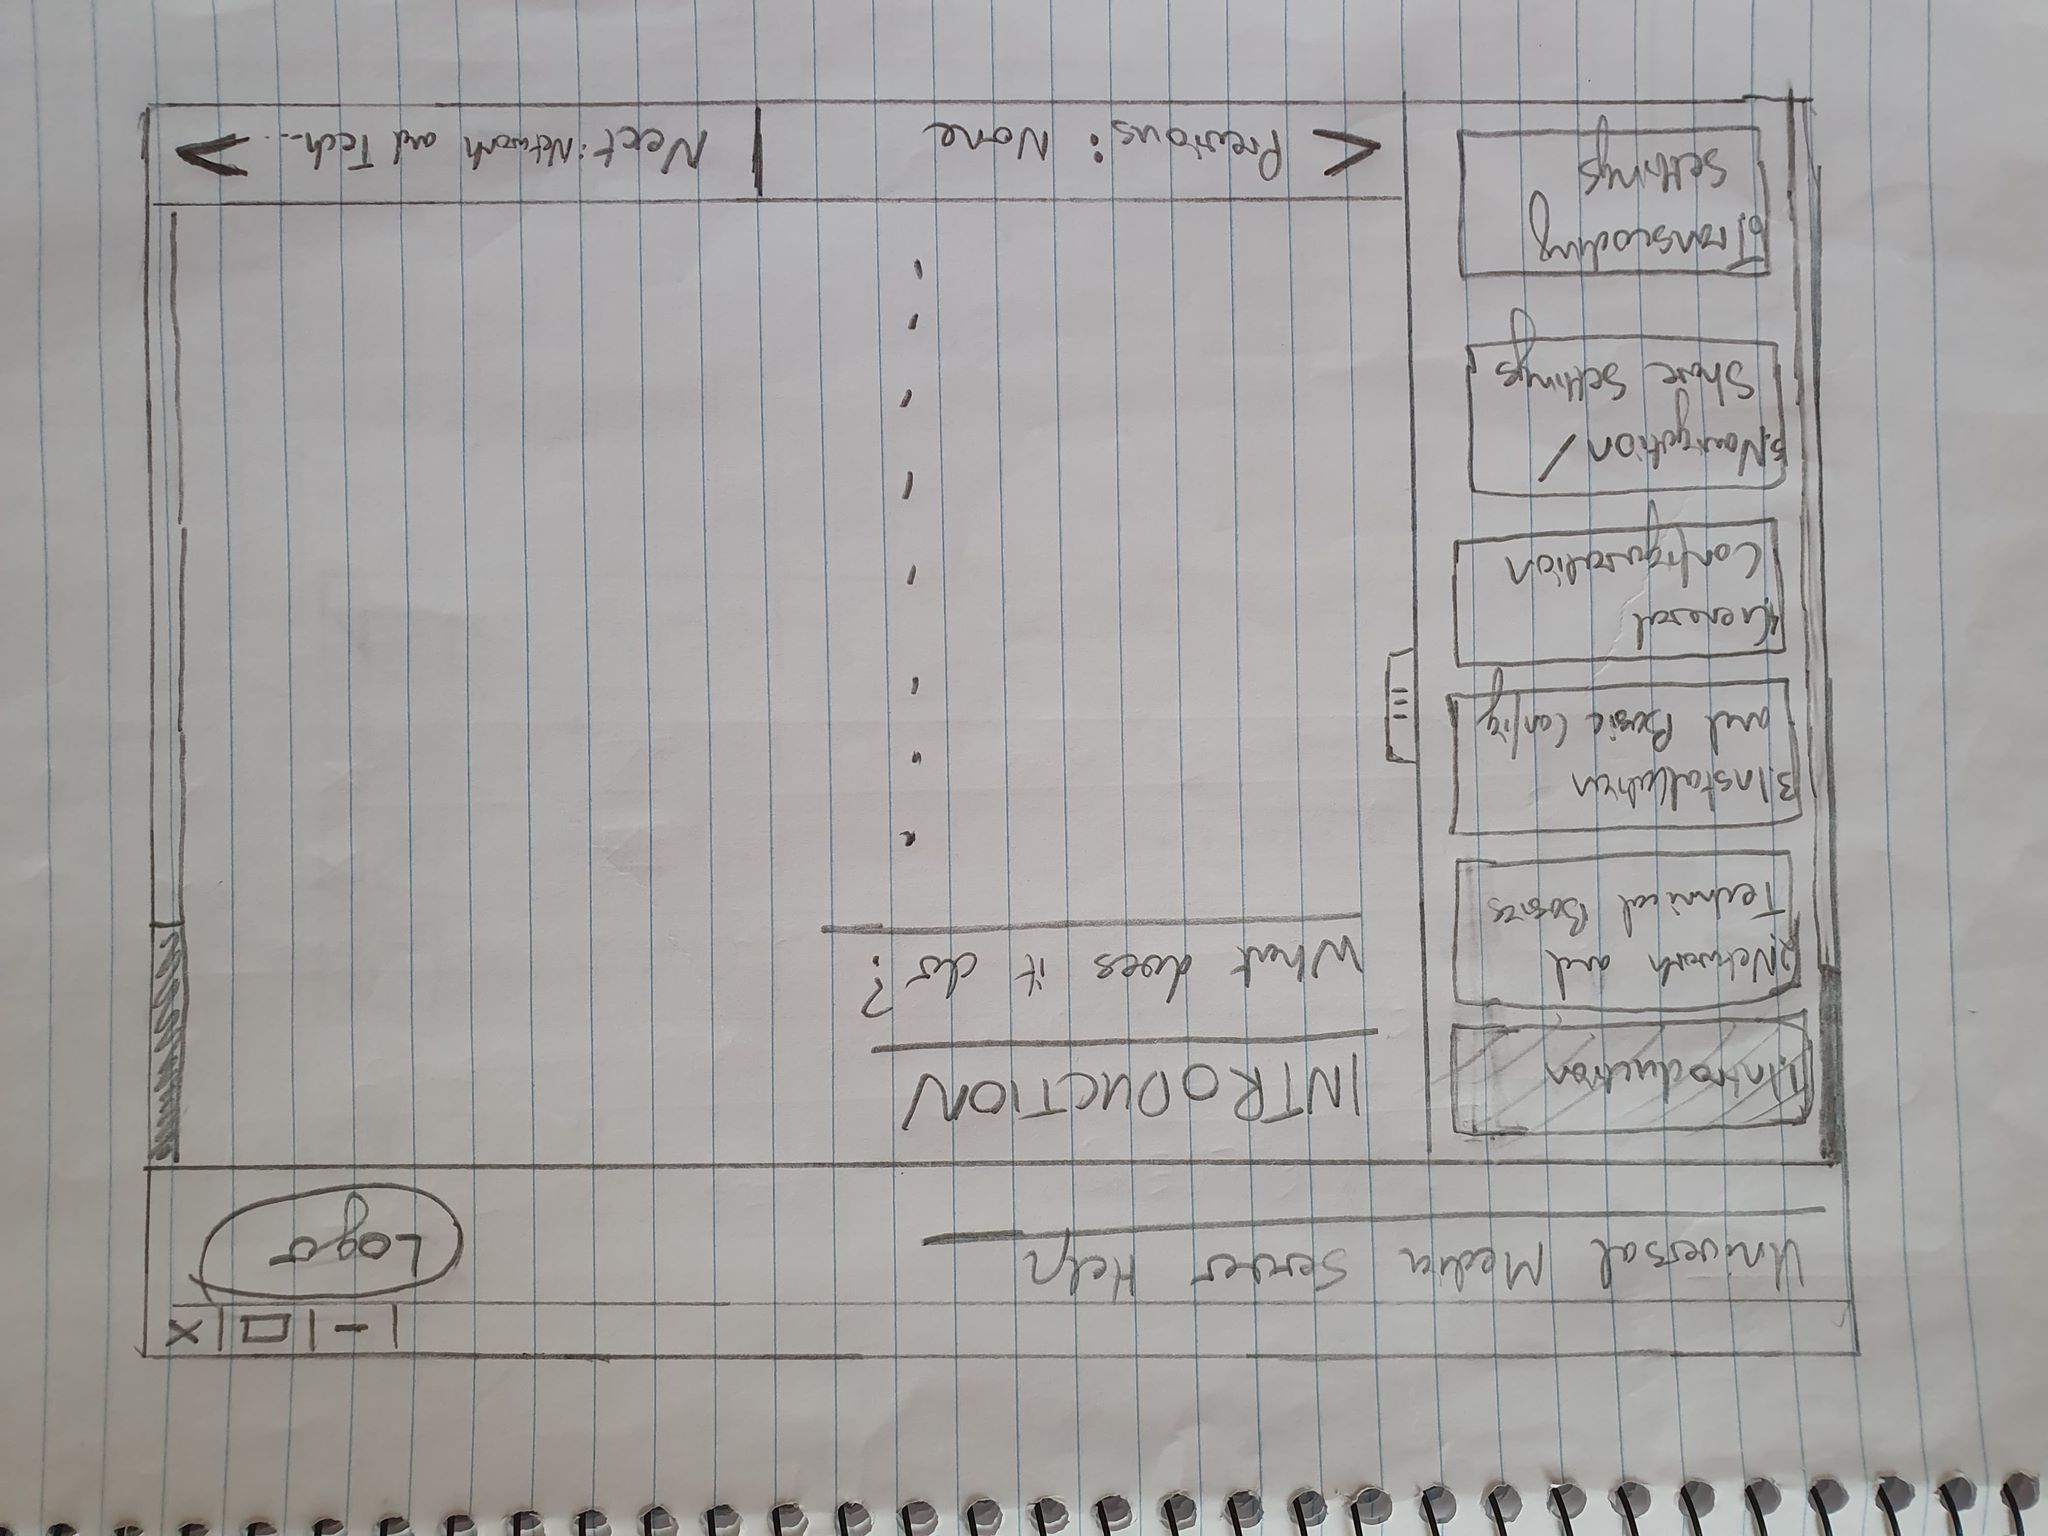 Universal Media Server Help
Logo
1.Introduction
2.Network and
Technical Basics
3.Installation
and Basic Config
4.General
Configuration
5.Navigation/
Share Settings
6.Transcoding
Settings
INTRODUCTION
What does it do?
< Previous: None | Next: Network and Tech... >